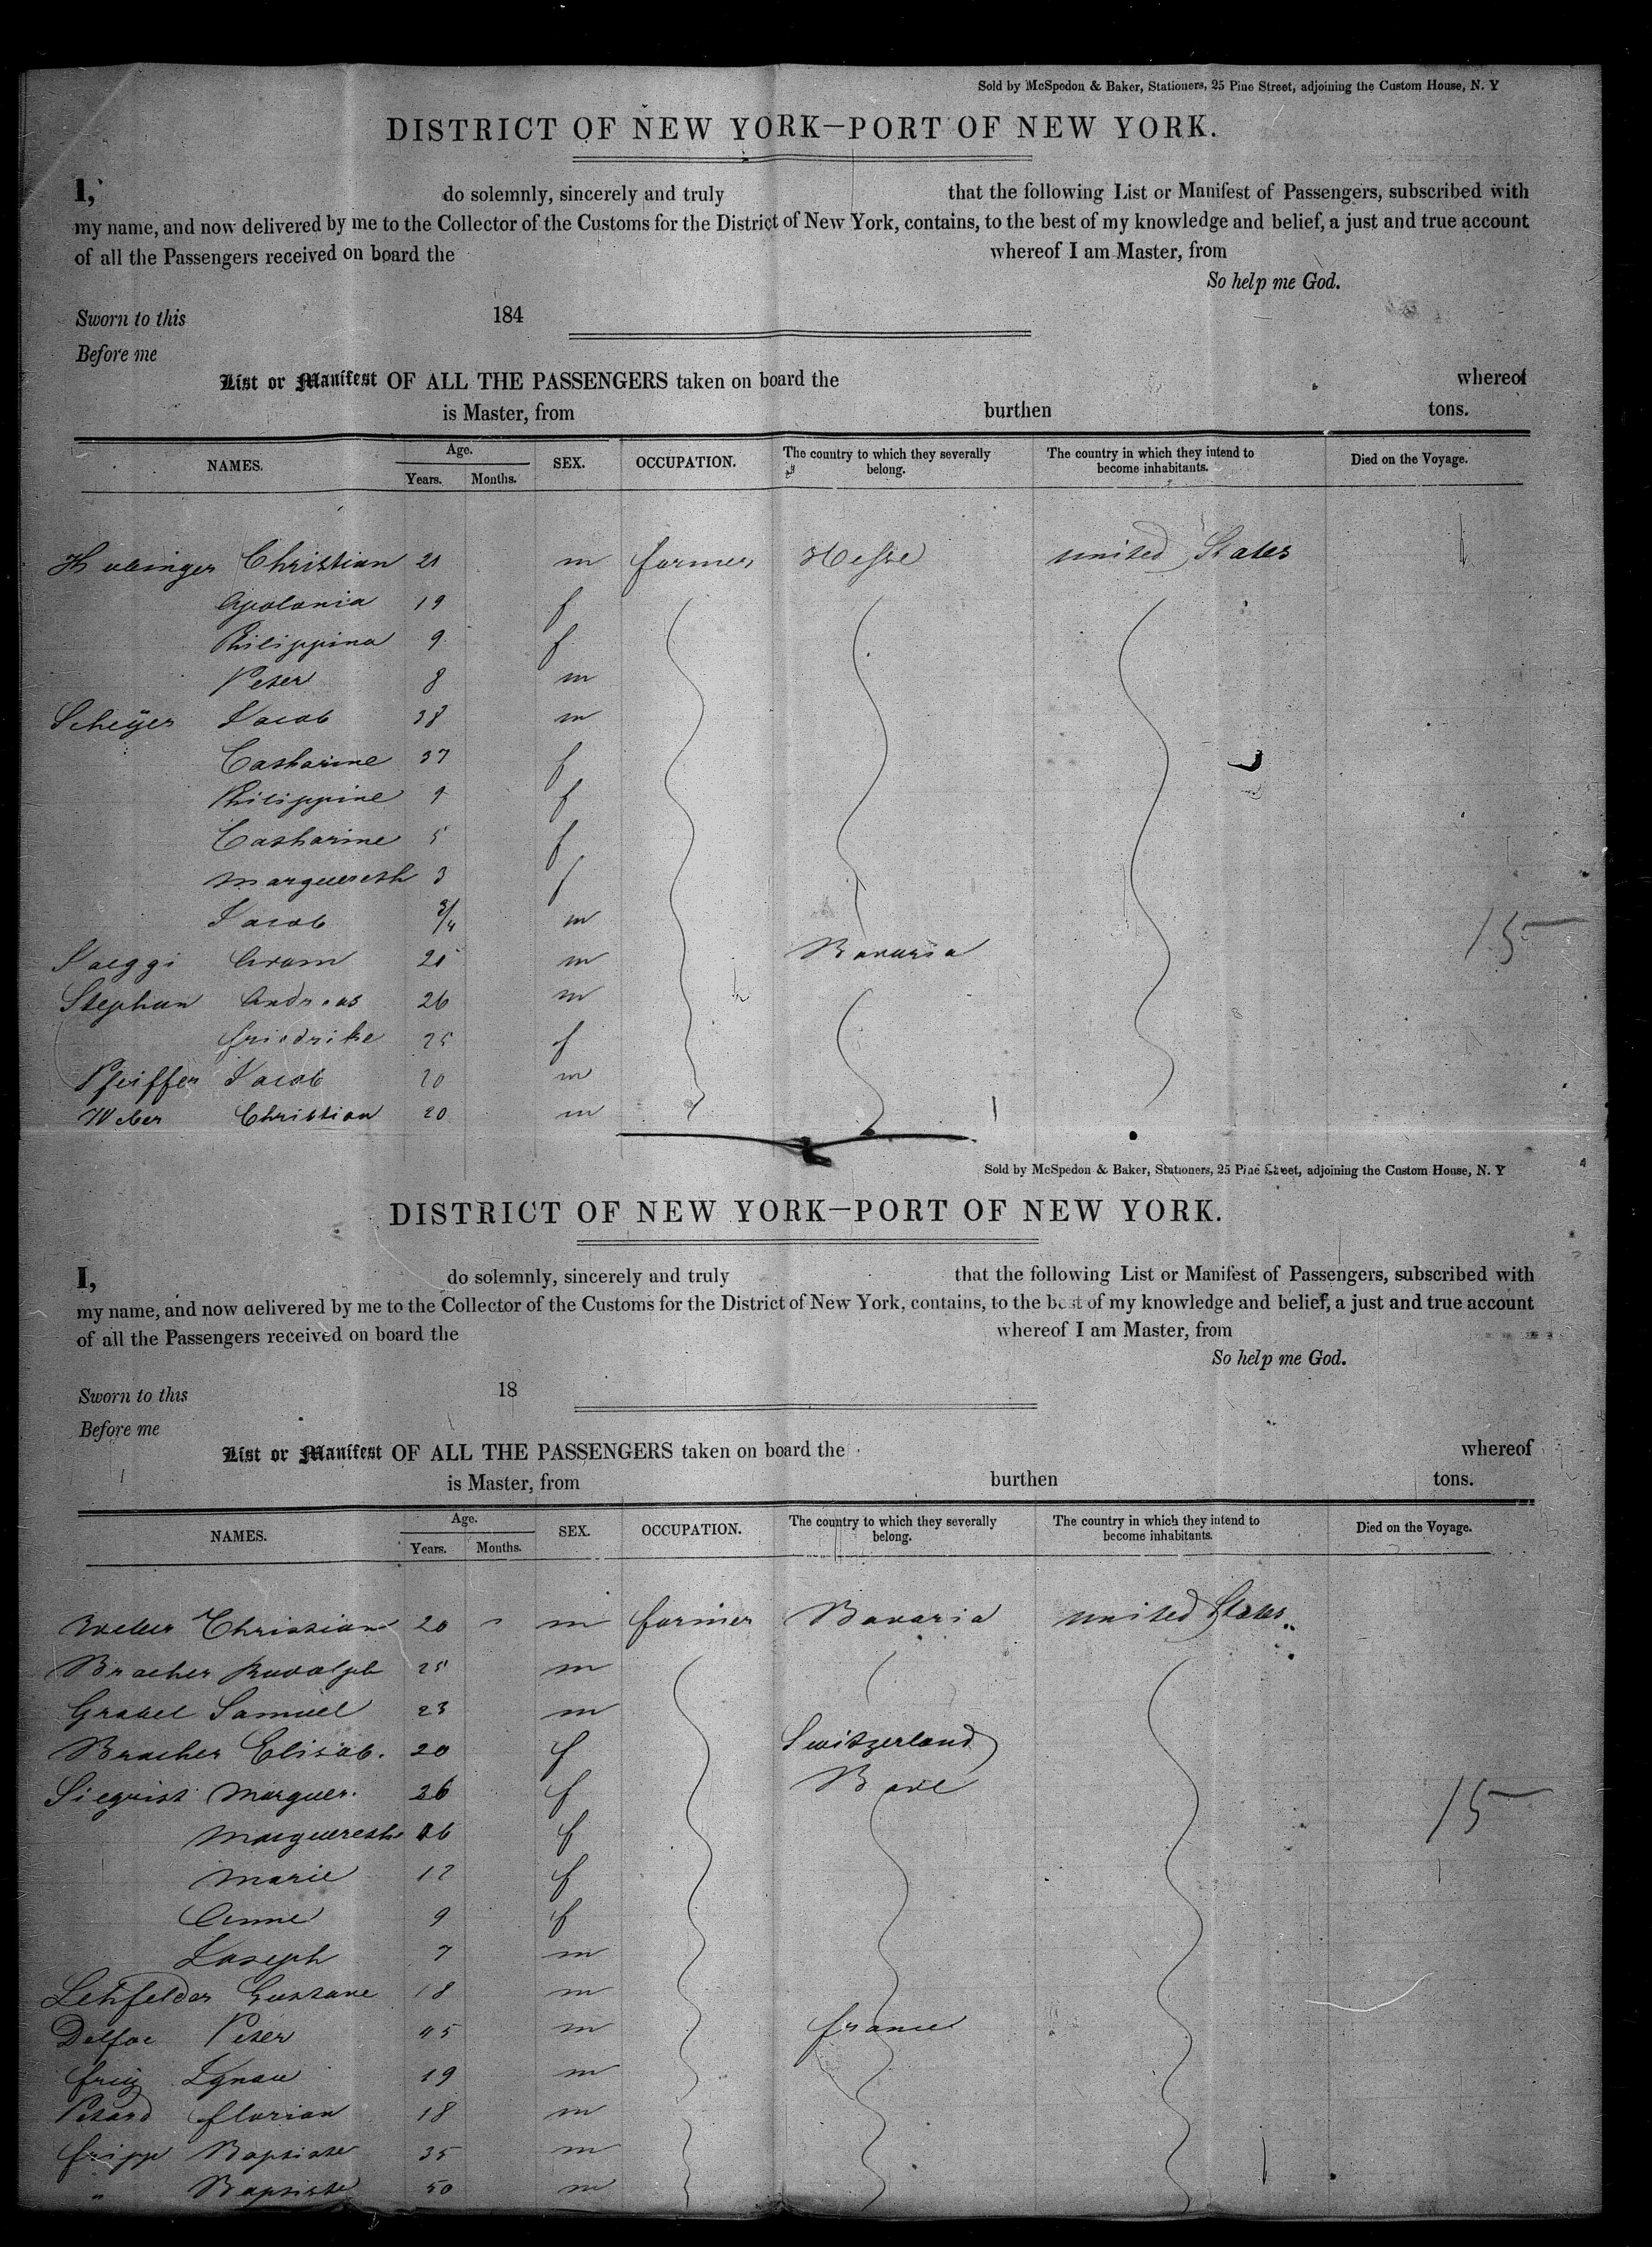 Sold by McSpedon & Baker, Stationers, 25 Pine Street, adjoining the Custom House, N. Y
DISTRICT OF NEW YORK—PORT OF NEW YORK.
I, do solemnly, sincerely and truly that the following List or Manifest of Passengers, subscribed with
my name, and now delivered by me to the Collector of the Customs for the District of New York, contains, to the best of my knowledge and belief, a just and true account
of all the Passengers received on board the whereof I am Master, from
So help me God.
Sworn to this 184
Before me
List or Manifest OF ALL THE PASSENGERS taken on board the whereof
is Master, from burthen tons.
NAMES. Age. Years. Months. SEX. OCCUPATION. The country to which they severally belong. The country in which they intend to become inhabitants. Died on the Voyage.
Christian 21 m farmer Hesse united States
Apolonia 19 f
Philippina 9 f
Peter 8 m
Scheyer Jacob 38 m
Catharine 37 f
Philippine 9 f
Catharine 5 f
Marguereth 3 f
Jacob 3/4 m
15
Jaeggi Abram 21 m Bavaria
Stephan Andreas 26 m
friedrike 25 f
Pfeiffer Jacob 20 m
Weber Christian 20 m
Sold by McSpedon & Baker, Stationers, 25 Pine Street, adjoining the Custom House, N. Y
DISTRICT OF NEW YORK—PORT OF NEW YORK.
I, do solemnly, sincerely and truly that the following List or Manifest of Passengers, subscribed with
my name, and now delivered by me to the Collector of the Customs for the District of New York, contains, to the best of my knowledge and belief, a just and true account
of all the Passengers received on board the whereof I am Master, from
So help me God.
Sworn to this 18
Before me
List or Manifest OF ALL THE PASSENGERS taken on board the whereof
is Master, from burthen tons.
NAMES. Age. Years. Months. SEX. OCCUPATION. The country to which they severally belong. The country in which they intend to become inhabitants. Died on the Voyage.
Weber Christian 20 m farmer Bavaria united States
Bracher Rudolph 25 m
Grabel Samuel 23 m
Bracher Elisab. 20 f Switzerland
Siegrist Marguer. 26 f
15
Marguereth 16 f
Marie 12 f
Anne 9 f
Joseph 7 m
Lehfelder Gustave 18 m
Delfoe Peter 45 m france
Ignau 19 m
Petard florian 18 m
fripp Baptiste 35 m
" Baptiste 50 m